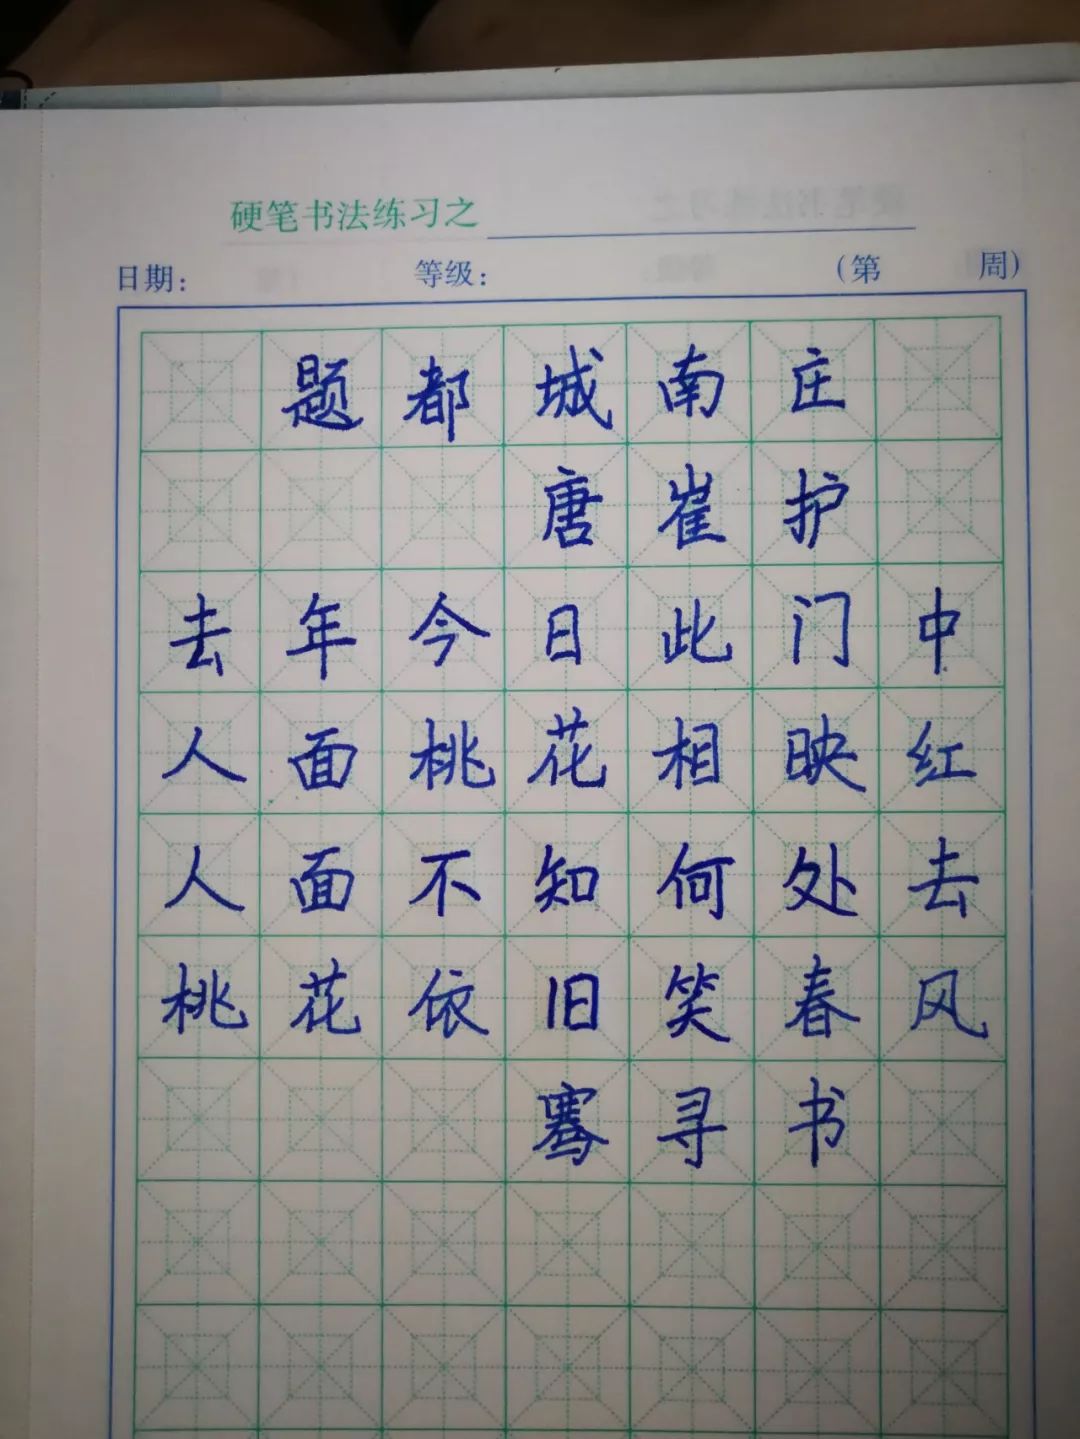 硬笔书法练习之
日期: 等级: (第 周)
题都城南庄
唐崔护
去年今日此门中
人面桃花相映红
人面不知何处去
桃花依旧笑春风
骞寻书